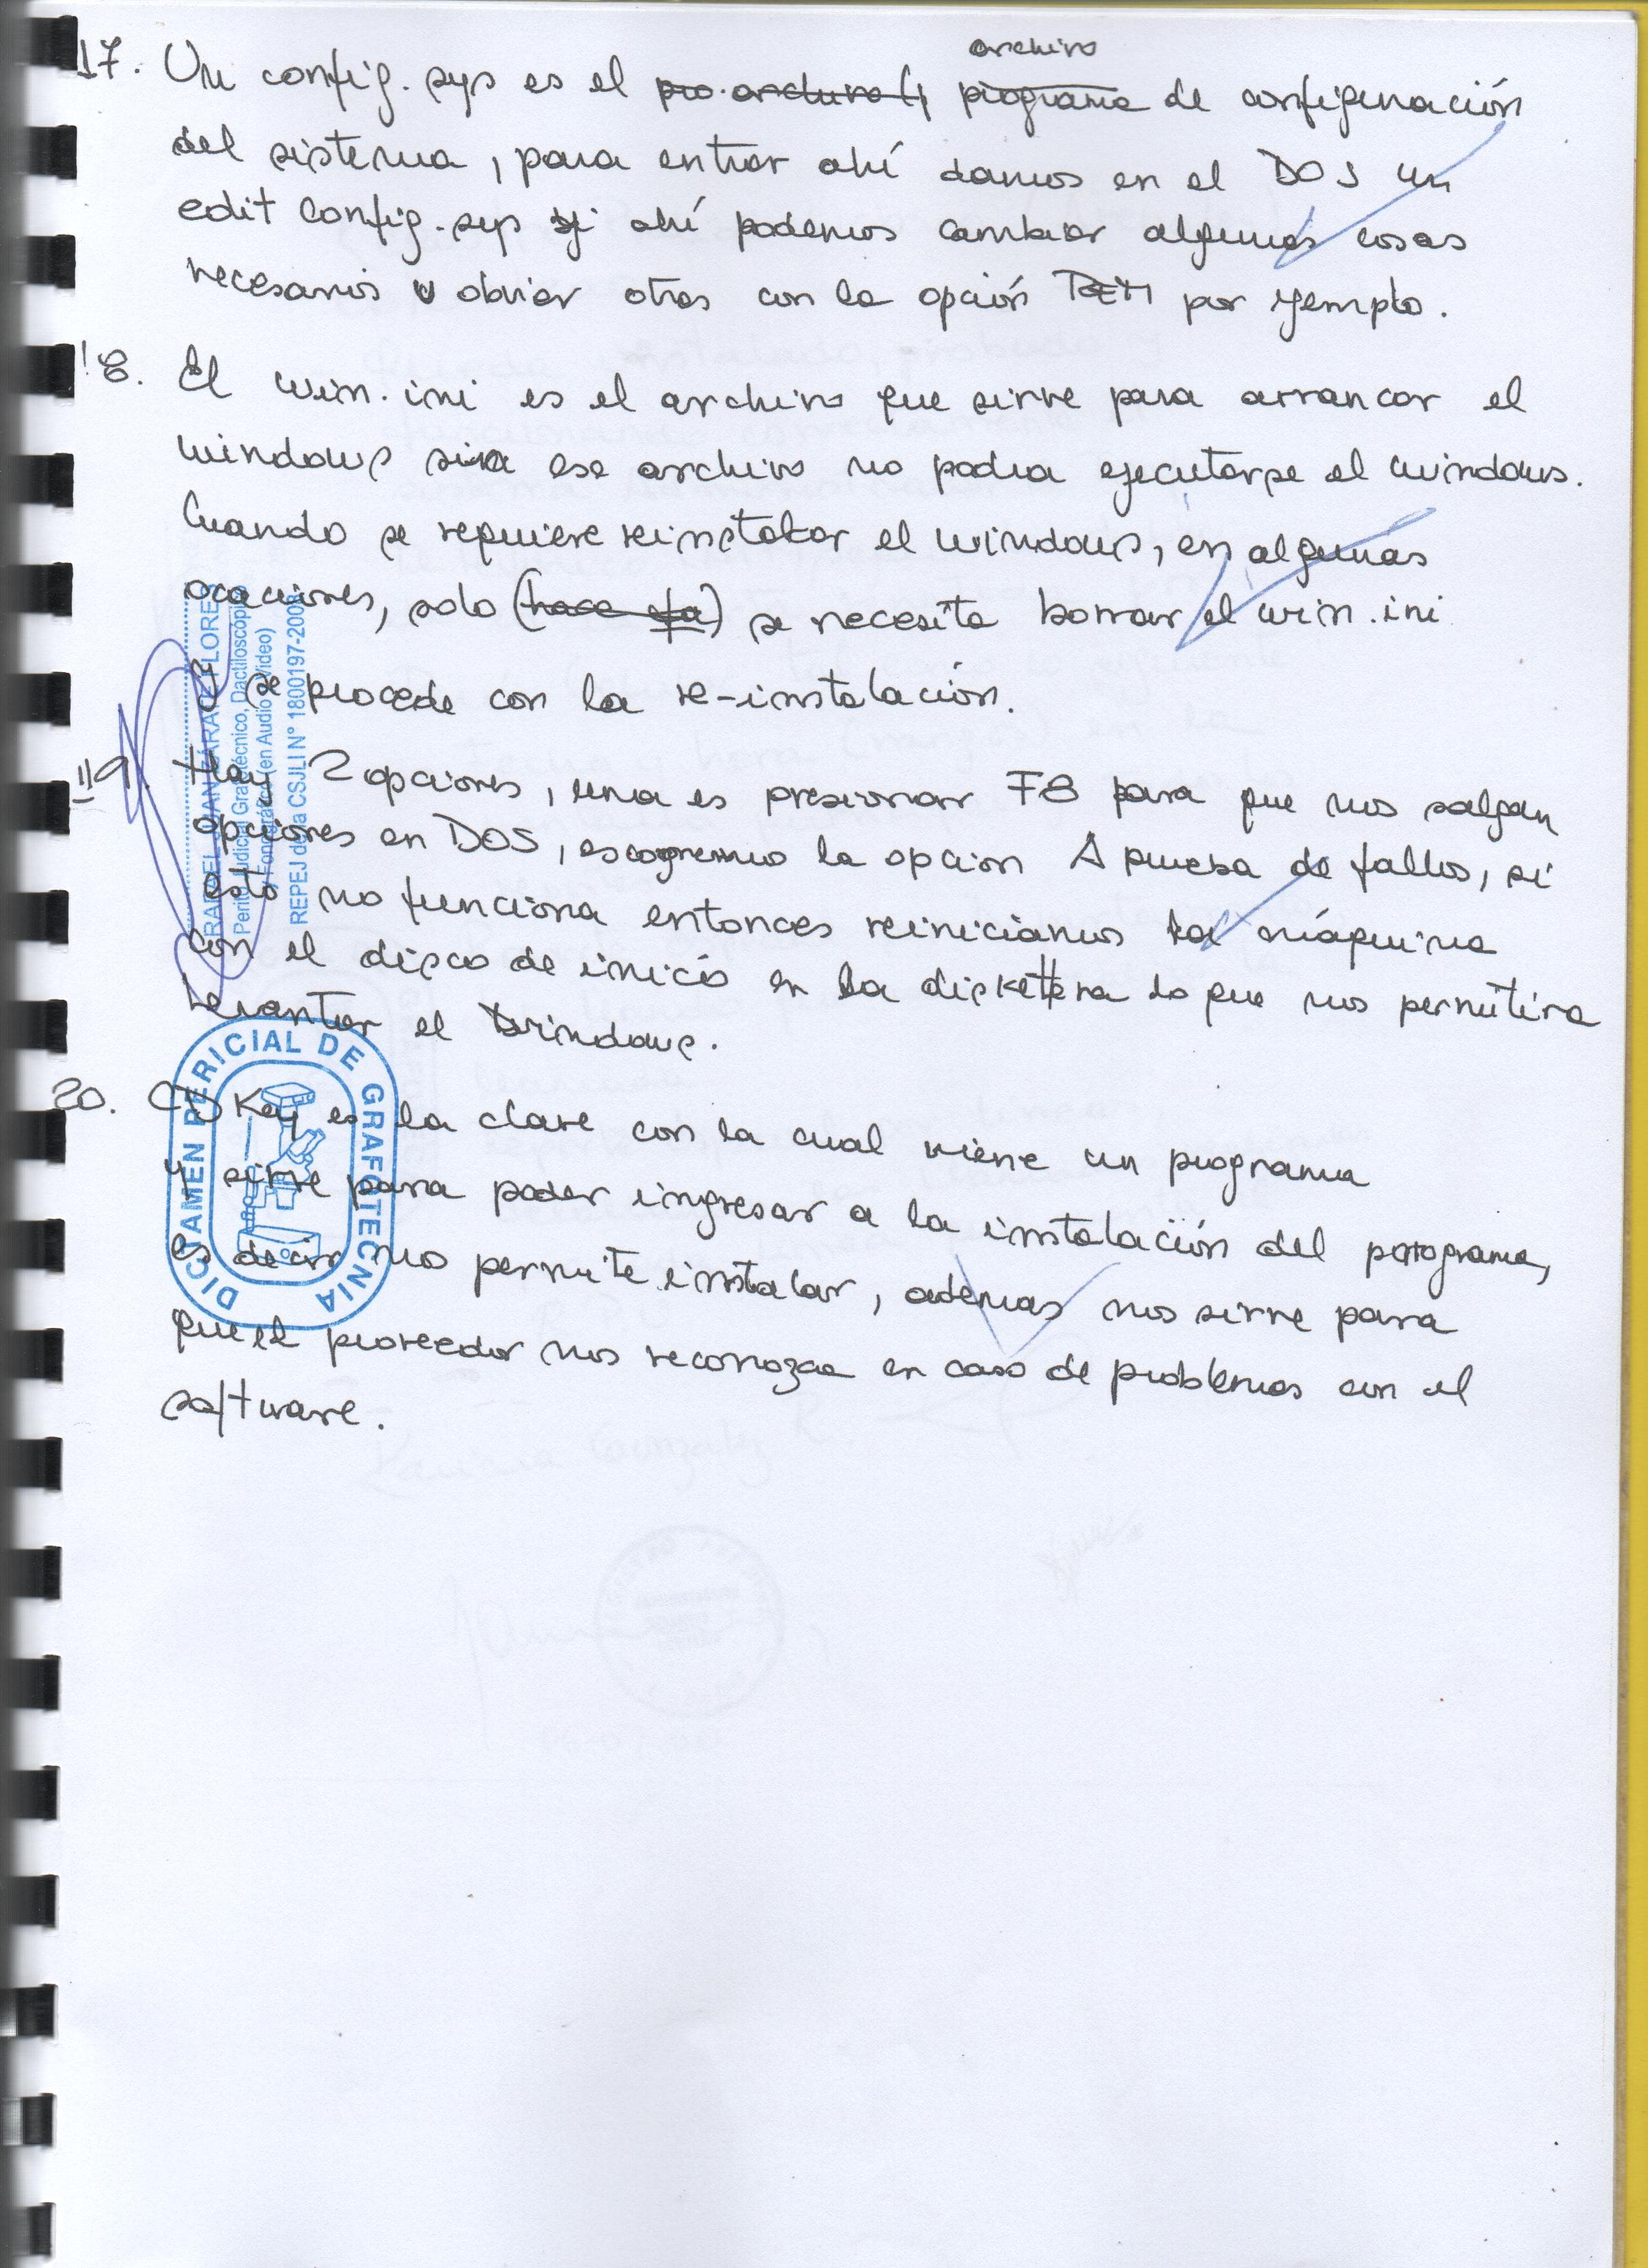 archivo
17. Un config.sys es el pro archivo programa de configuración
del sistema, para entrar ahí damos en el DOS un
edit config.sys y ahí podemos cambiar algunas cosas
necesarias u obviar otras con la opción REM por ejemplo.
18. El win.ini es el archivo que sirve para arrancar el
windows sin ese archivo no podia ejecutarse el windows.
Cuando se requiere reinstalar el windows, en algunas
ocaciones, solo (hace fa) se necesita borrar el win.ini
y se procede con la re-instalación.
19. Hay 2 opciones, una es presionar F8 para que nos salgan
opciones en DOS, escogremos la opcion A prueba de fallos, si
esto no funciona entonces reiniciamos la máquina
con el disco de inicio en la diskettera lo que nos permitira
levantar el Windows.
20. CD Key es la clave con la cual viene un programa
y sirve para poder ingresar a la instalación del programa,
es decir nos permite instalar, ademas nos sirve para
que el proveedor nos reconozca en caso de problemas con el
software.
RAFAEL JUAN ZÁRATE FLORES
Perito Judicial Grafotécnico, Dactiloscópico
y Fonográfico (en Audio y Video)
REPEJ de la CSJLI N° 1800197-2008
DICTAMEN PERICIAL DE GRAFOTECNIA